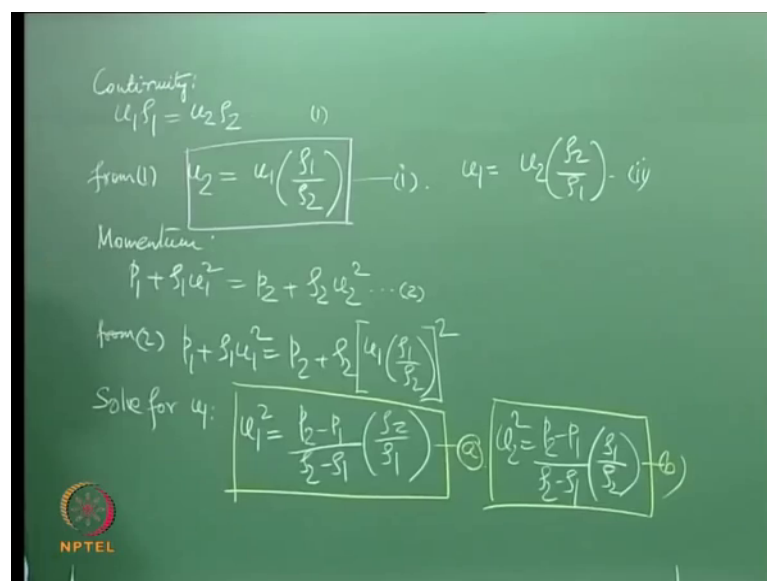 Continuity:
u₁ρ₁ = u₂ρ₂ (1)
from (1) u₂ = u₁(ρ₁/ρ₂) —(i). u₁ = u₂(ρ₂/ρ₁). (ii)
Momentum.
p₁ + ρ₁u₁² = p₂ + ρ₂u₂² ...(2)
from (2) p₁ + ρ₁u₁² = p₂ + ρ₂[u₁(ρ₁/ρ₂)]²
Solve for u₁: u₁² = p₂-p₁/ρ₂-ρ₁ (ρ₂/ρ₁) —(a) u₂² = p₂-p₁/ρ₂-ρ₁ (ρ₁/ρ₂) —(b)
NPTEL